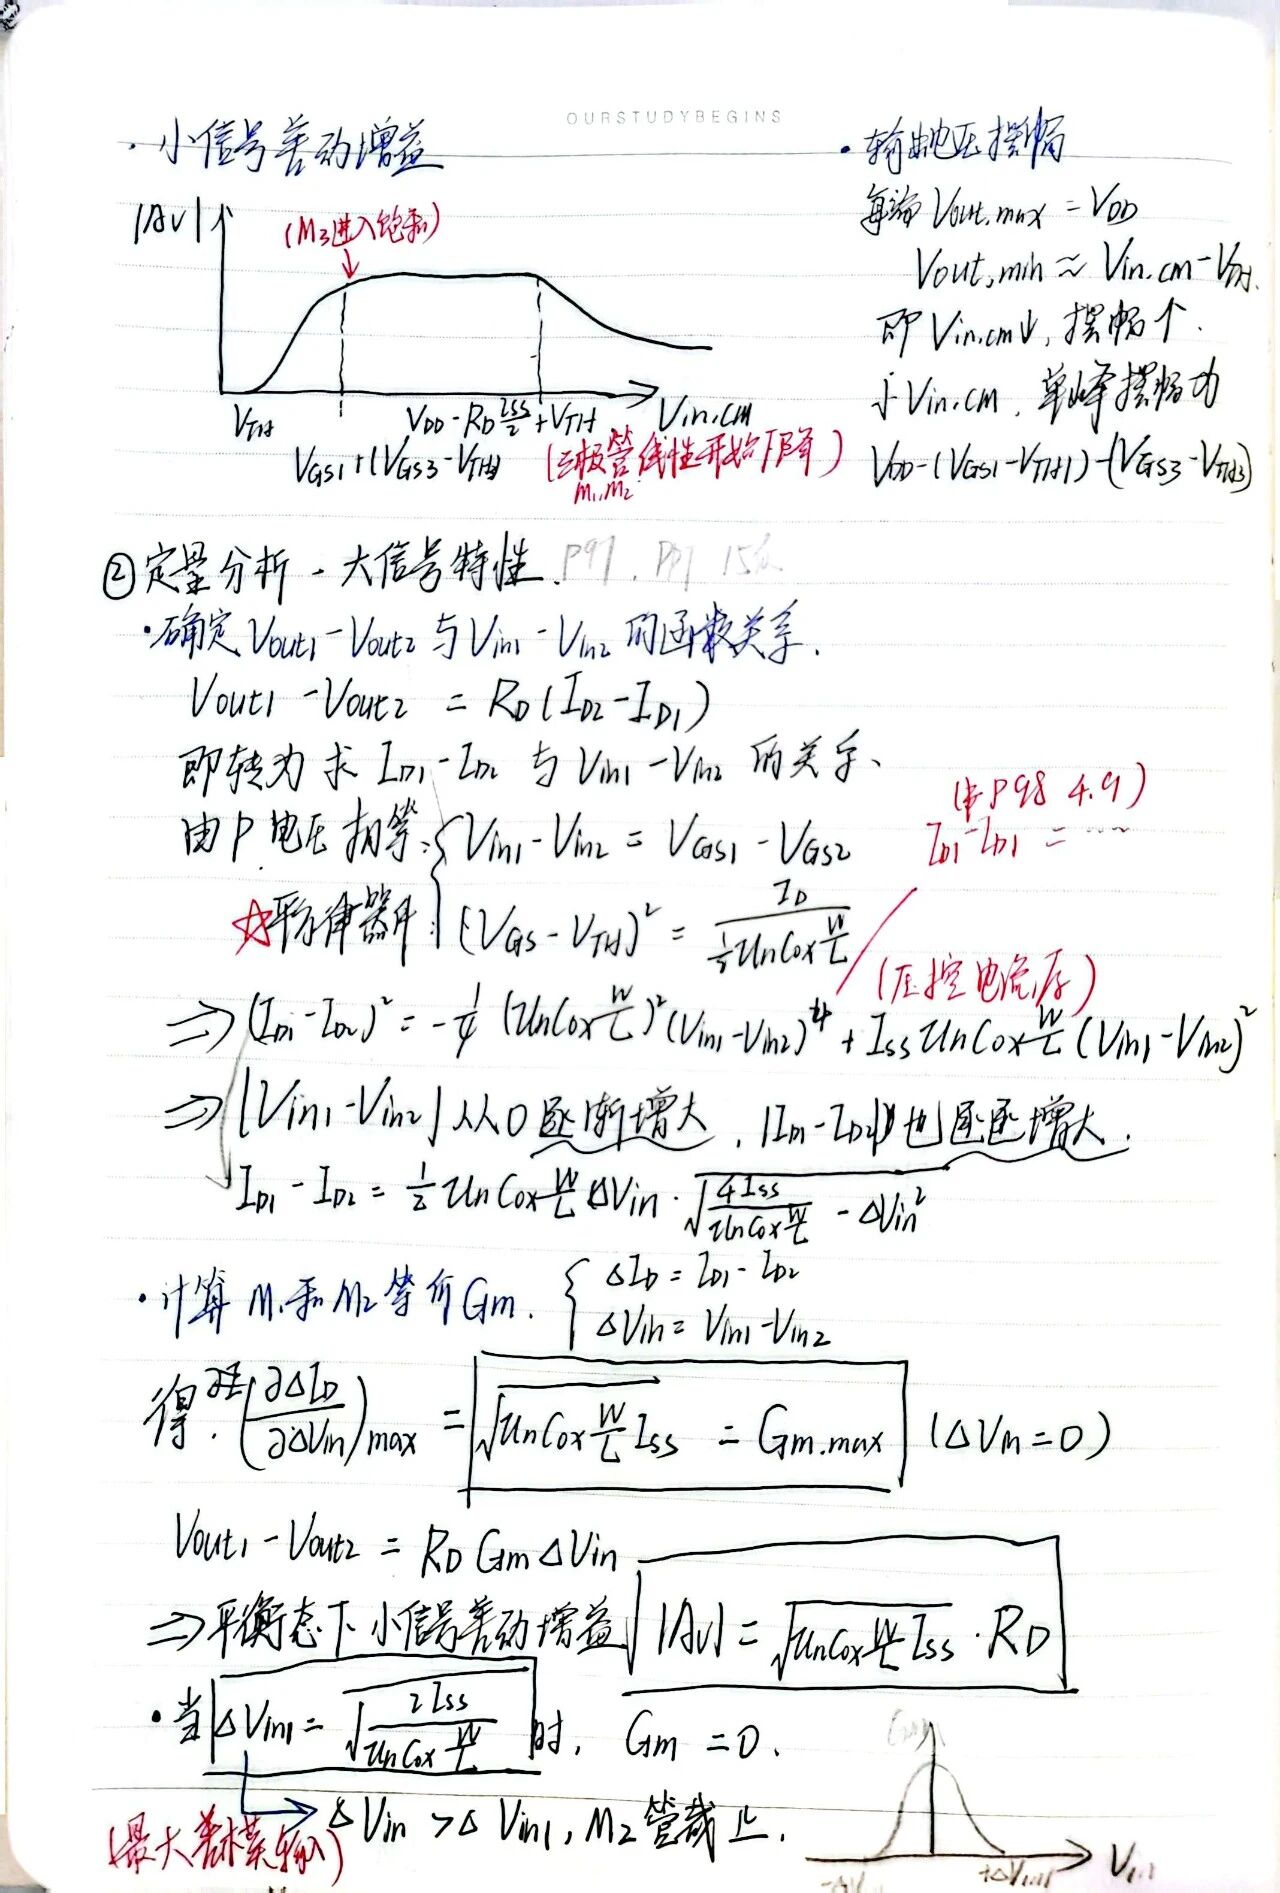 OURSTUDYBEGINS
· 小信号差动增益
|Av|
(M3进入饱和)
VTH
VGS1+(VGS3-VTH3)
VDD-RD ISS/2+VTH
Vin,cm
(三极管线性开始下降)
M1,M2
· 输出电压摆幅
每端 Vout,max = VDD
Vout,min ≈ Vin,cm-VTH.
即 Vin,cm↓, 摆幅↑.
Vin,cm, 单峰摆幅为
VDD-(VGS1-VTH1)-(VGS3-VTH3)
② 定量分析 - 大信号特性. P97.
· 确定 Vout1-Vout2 与 Vin1-Vin2 的函数关系.
Vout1-Vout2 = RD(ID2-ID1)
即转为求 ID1-ID2 与 Vin1-Vin2 的关系、
由P电压相等: { Vin1-Vin2 = VGS1-VGS2
(书P98 4.9)
ID1-ID1 = ...
☆平方律器件: (VGS-VTH)² = ID / (½UnCox W/L)
(压控电流源)
⇒ (ID1-ID2)² = -¼(UnCox W/L)²(Vin1-Vin2)⁴ + ISS UnCox W/L (Vin1-Vin2)²
⇒ |Vin1-Vin2| 从0逐渐增大, |ID1-ID2| 也逐逐增大.
ID1-ID2 = ½ UnCox W/L ΔVin · √(4ISS/(UnCox W/L) - ΔVin²)
· 计算 M1和M2等价Gm. { ΔID = ID1-ID2
ΔVin = Vin1-Vin2
得. (∂ΔID/∂ΔVin)max = √(UnCox W/L ISS) = Gm,max (ΔVin=0)
Vout1-Vout2 = RD Gm ΔVin
⇒ 平衡态下小信号差动增益 |Av| = √(UnCox W/L ISS) · RD
· 当 ΔVin1 = √(2ISS/(UnCox W/L)) 时, Gm = 0.
→ ΔVin > ΔVin1, M2管截止.
(最大差模输入)
Gm
-ΔVin1
+ΔVin1
Vin